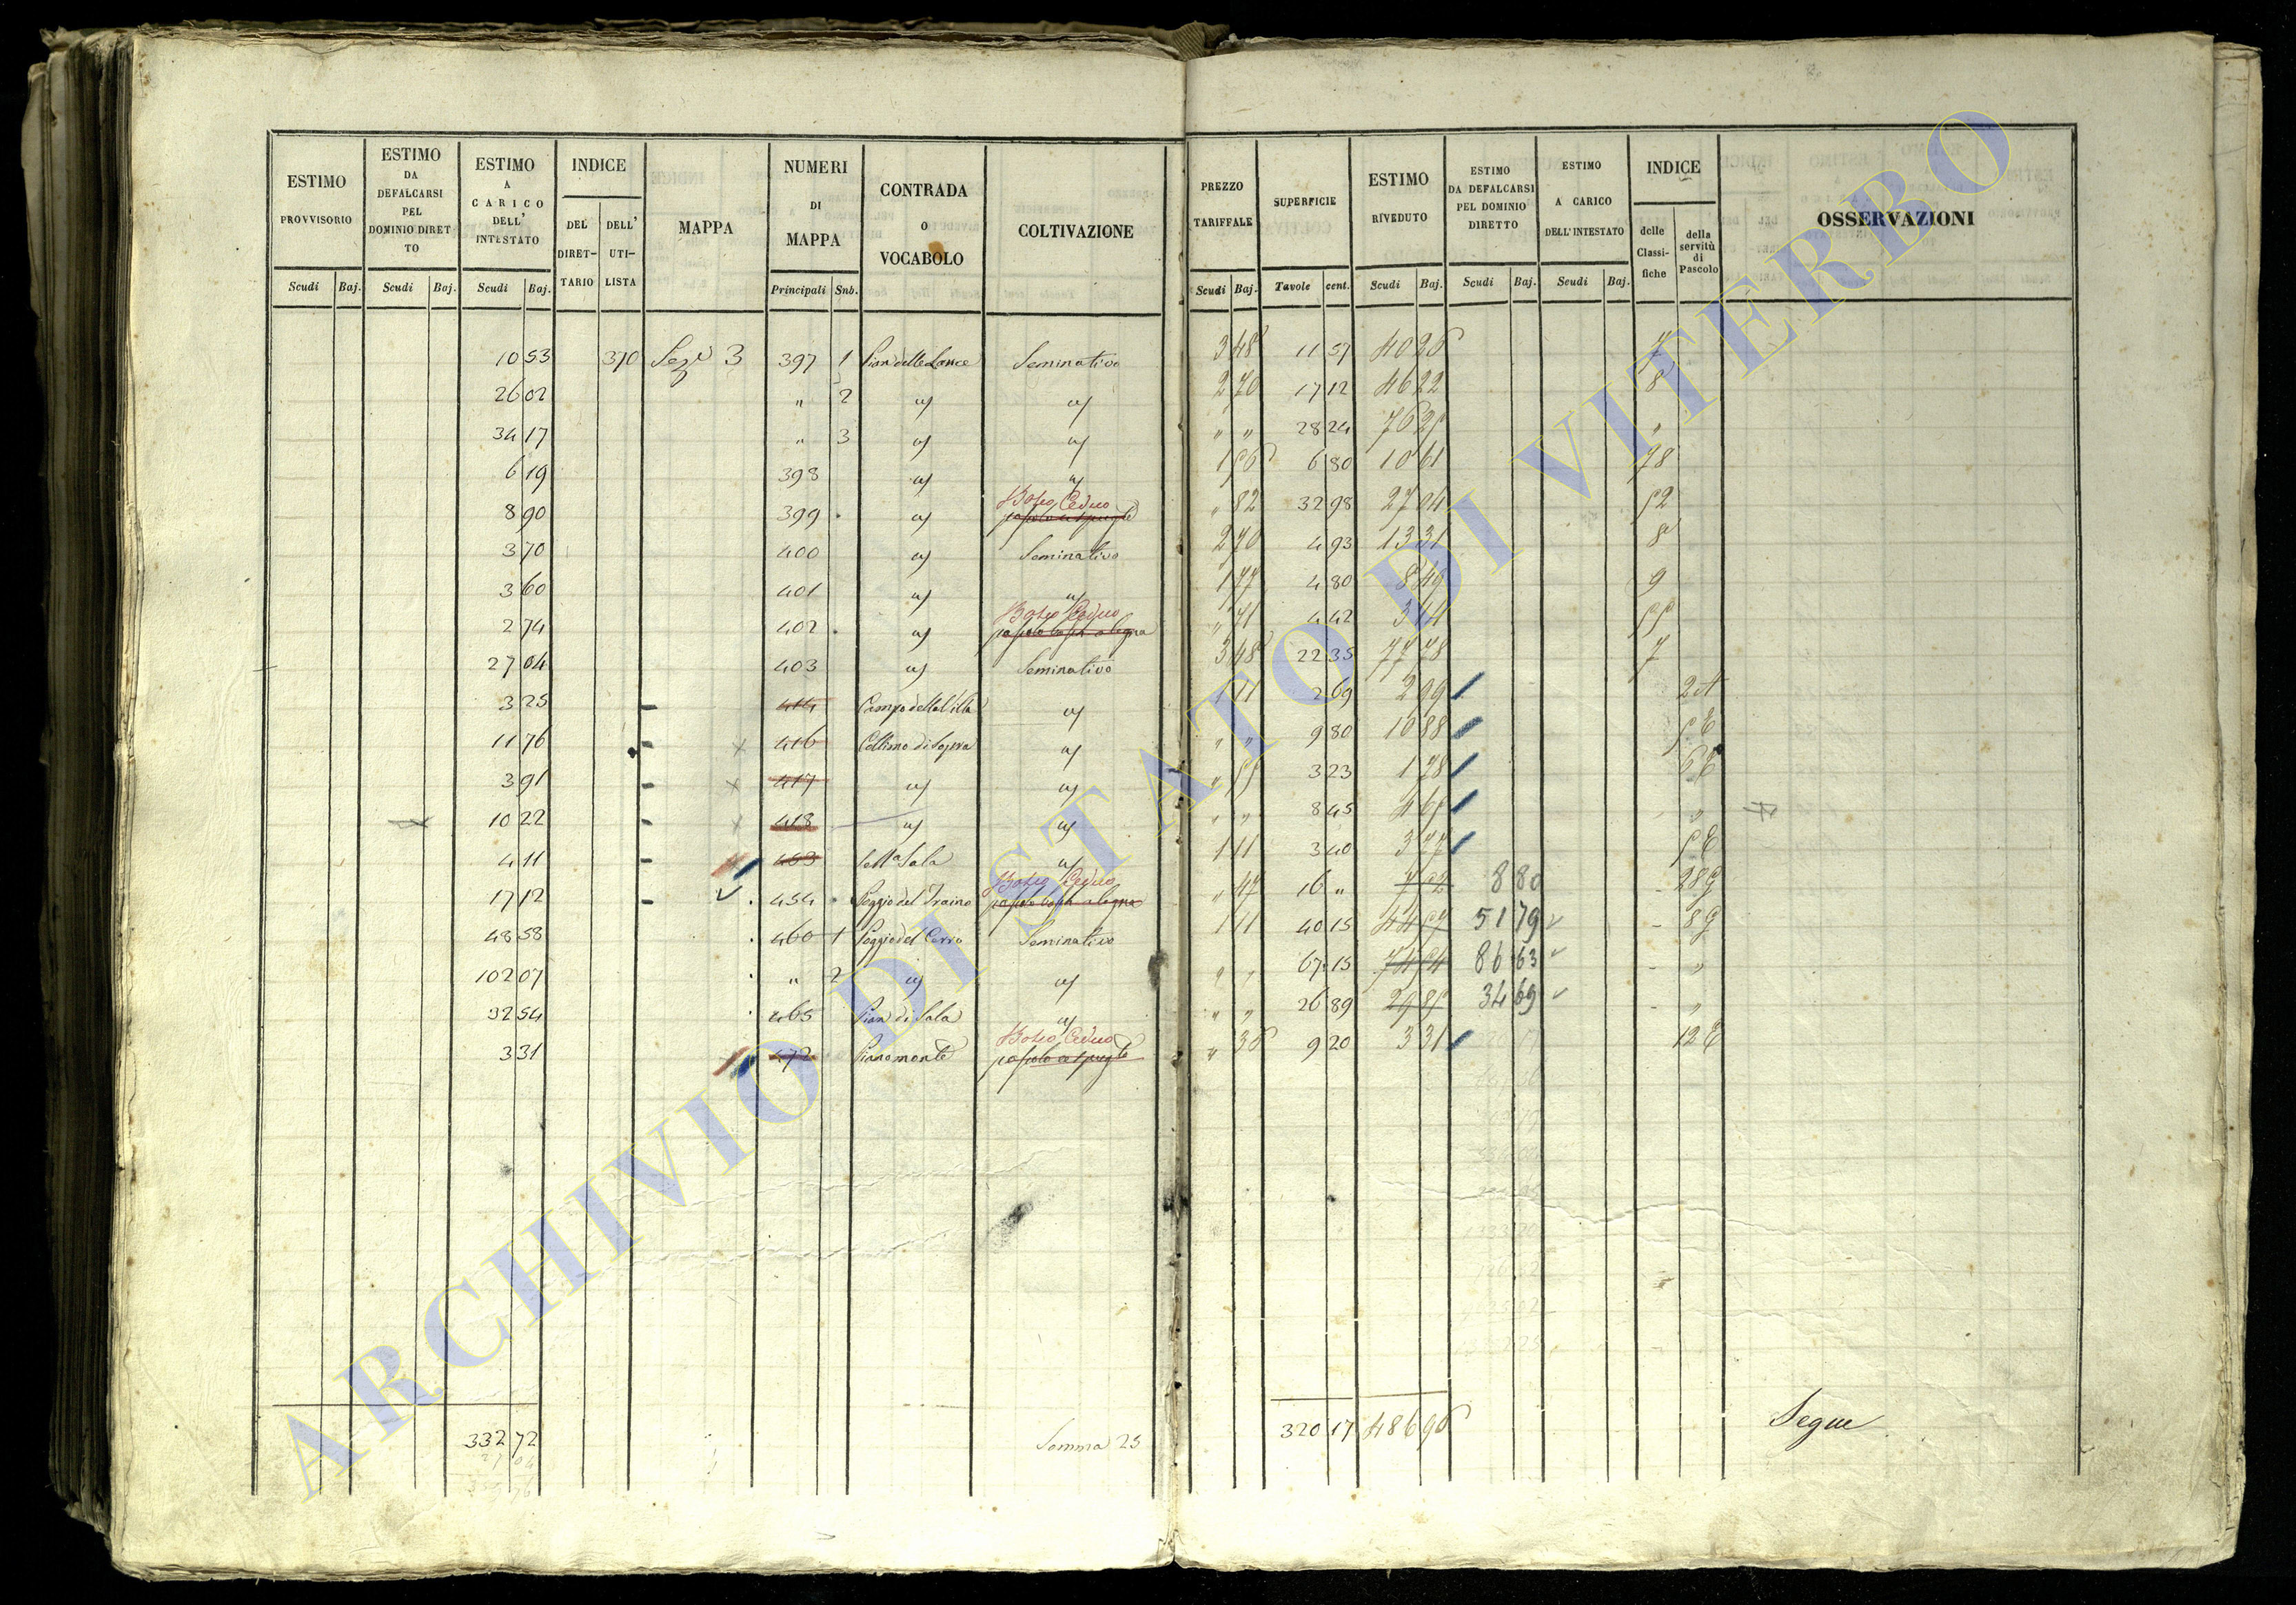 ESTIMO PROVVISORIO | ESTIMO DA DEFALCARSI PEL DOMINIO DIRETTO | ESTIMO A CARICO DELL' INTESTATO | INDICE DEL DIRETTARIO | DELL' UTILISTA | MAPPA | NUMERI DI MAPPA | CONTRADA O VOCABOLO | COLTIVAZIONE | PREZZO TARIFFALE | SUPERFICIE | ESTIMO RIVEDUTO | ESTIMO DA DEFALCARSI PEL DOMINIO DIRETTO | ESTIMO A CARICO DELL'INTESTATO | INDICE delle Classifiche | della servitù di Pascolo | OSSERVAZIONI
Scudi Baj. Scudi Baj. Scudi Baj. Principali Snb. Scudi Baj. Tavole cent. Scudi Baj. Scudi Baj. Scudi Baj.
10 53 370 3 397 1 Pian delle Lance Seminativo 3 48 11 57 40 26 7
26 02 " 2 2 70 17 12 46 22 8
34 17 " 3 " " 28 24 76 25 "
6 19 398 1 56 6 80 10 61 78
8 90 399 Bosco Ceduo " 82 32 98 27 04 52
3 70 400 Seminativo 2 70 4 93 13 31 8
3 60 401 1 77 4 80 8 49 9
2 74 402 Bosco Ceduo " 71 4 42 3 14 55
27 04 403 Seminativo 3 48 22 35 77 78 7
3 25 414 Campo della Villa 1 11 2 69 2 99
11 76 416 Collimo di Sopra " " 9 80 10 88 5 E
3 91 417 " 55 3 23 1 78 6 E
10 22 418 " " 8 45 4 65 "
4 11 453 Sala 1 11 3 40 3 77 5 E
17 12 454 Poggio del Traino Bosco Ceduo " 47 16 " 7 52 8 80 28 G
48 58 460 1 Poggio del Cerro Seminativo 1 11 40 15 44 57 51 79 8 G
102 07 " 2 " " 67 15 74 54 86 63 "
32 54 465 Pian di Sala " " 26 89 29 85 34 69 "
3 31 472 Pianomonte Bosco Ceduo " 36 9 20 3 31 12 E
332 72 Somma 25 320 17 486 96 Segue
ARCHIVIO DI STATO DI VITERBO